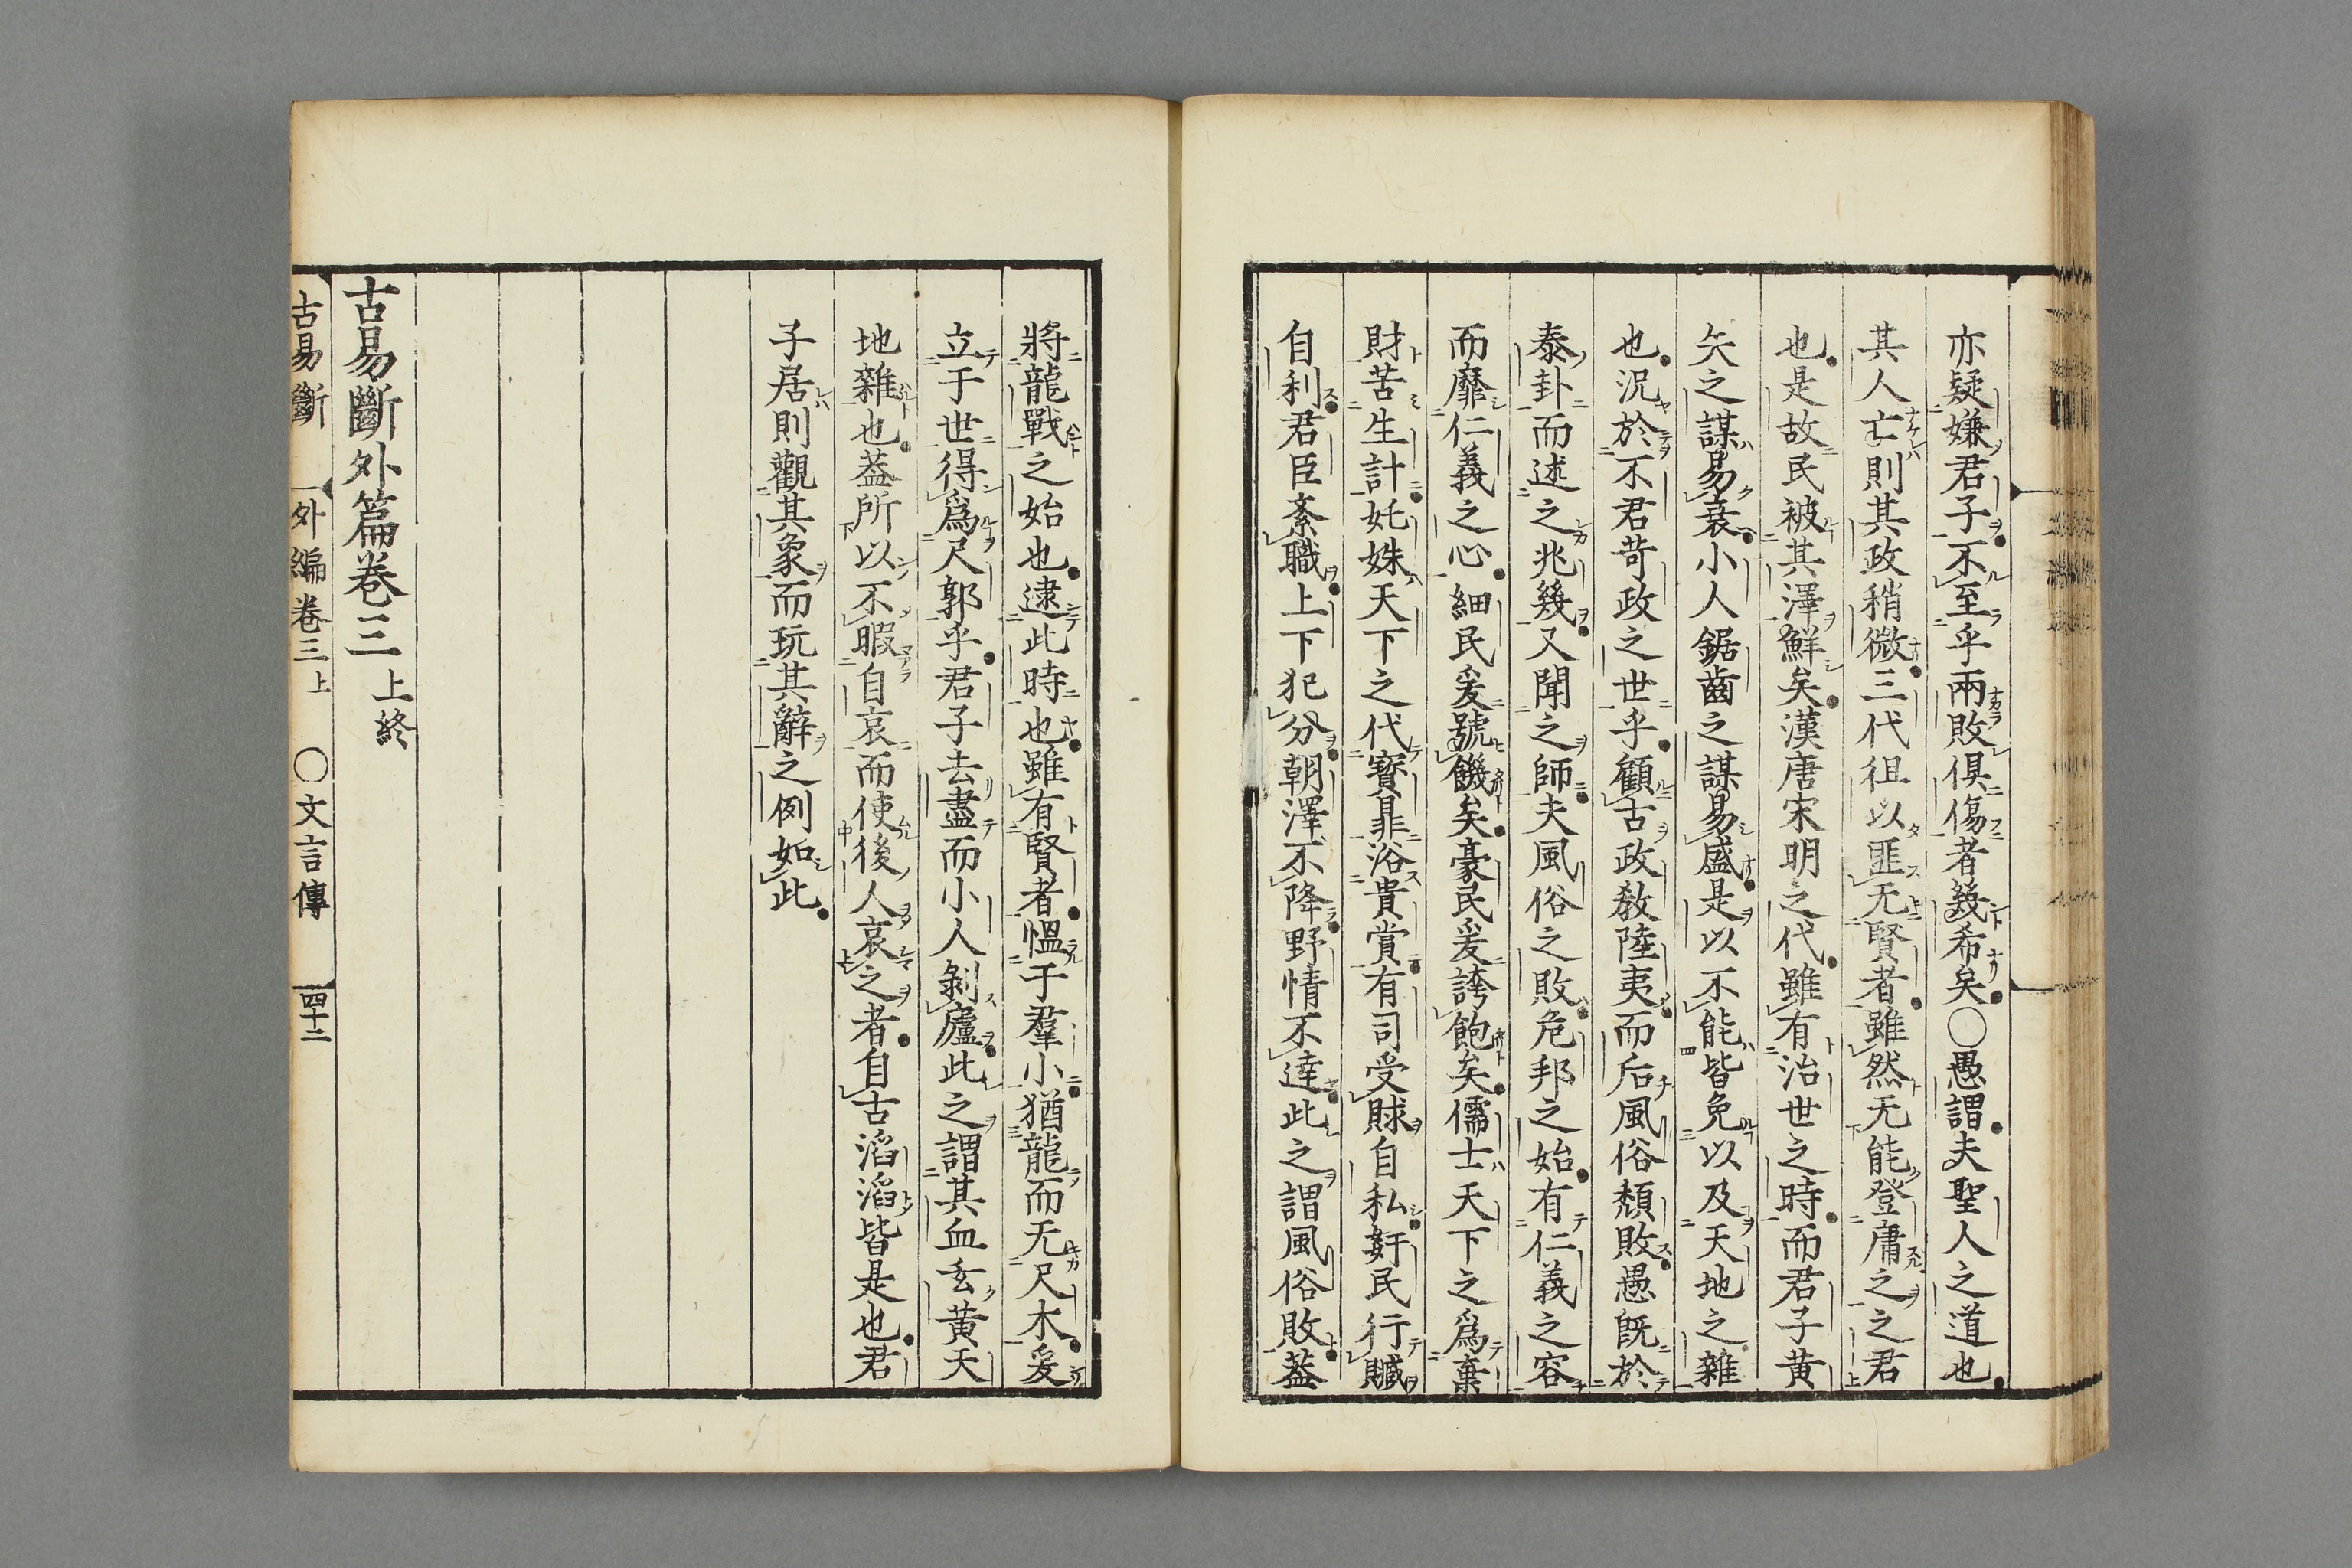 亦疑嫌君子不至乎兩敗俱傷者幾希矣○愚謂夫聖人之道也
其人亡則其政稍微三代徂以匪无賢者雖然无能登庸之之君
也是故民被其澤鮮矣漢唐宋明之代雖有治世之時而君子黃
矢之謀易衰小人鋸齒之謀易盛是以不能皆免以及天地之雜
也況於不君苛政之世乎顧古政敎陸夷而后風俗頹敗愚旣於
泰卦而述之兆幾又聞之師夫風俗之敗危邦之始有仁義之容
而靡仁義之心細民爰號饑矣豪民爰誇飽矣儒士天下之爲棄
財苦生計奼姝天下之代寳辠浴貴賞有司受賕自私奸民行贓
自利君臣紊職上下犯分朝澤不降野情不達此之謂風俗敗葢
將龍戰之始也逮此時也雖有賢者慍于羣小猶龍而无尺木爰
立于世得爲尺郭乎君子去盡而小人剝廬此之謂其血玄黃天
地雜也葢所以不暇自哀而使後人哀之者自古滔滔皆是也君
子居則觀其象而玩其辭之例如此
古易斷外篇卷三上終
古易斷 外編卷三上 ○文言傳 四十二